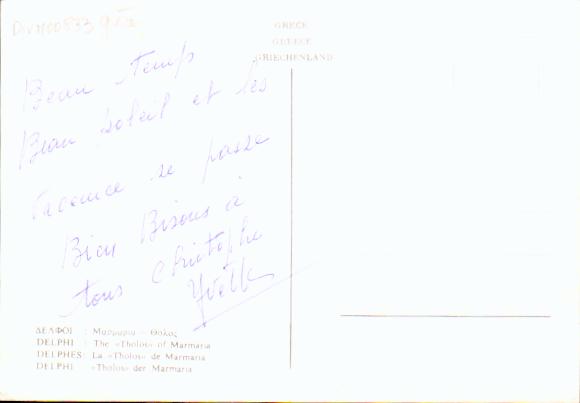 GRECE
GREECE
GRIECHENLAND
Beau temps
Beau soleil et les
vacance se passe
Bien Bisous à
tous Christophe
Yvette
ΔΕΛΦΟΙ : Μαρμαρια — Θολος
DELPHI : The «Tholos» of Marmaria
DELPHES: La «Tholos» de Marmaria
DELPHI : «Tholos» der Marmaria